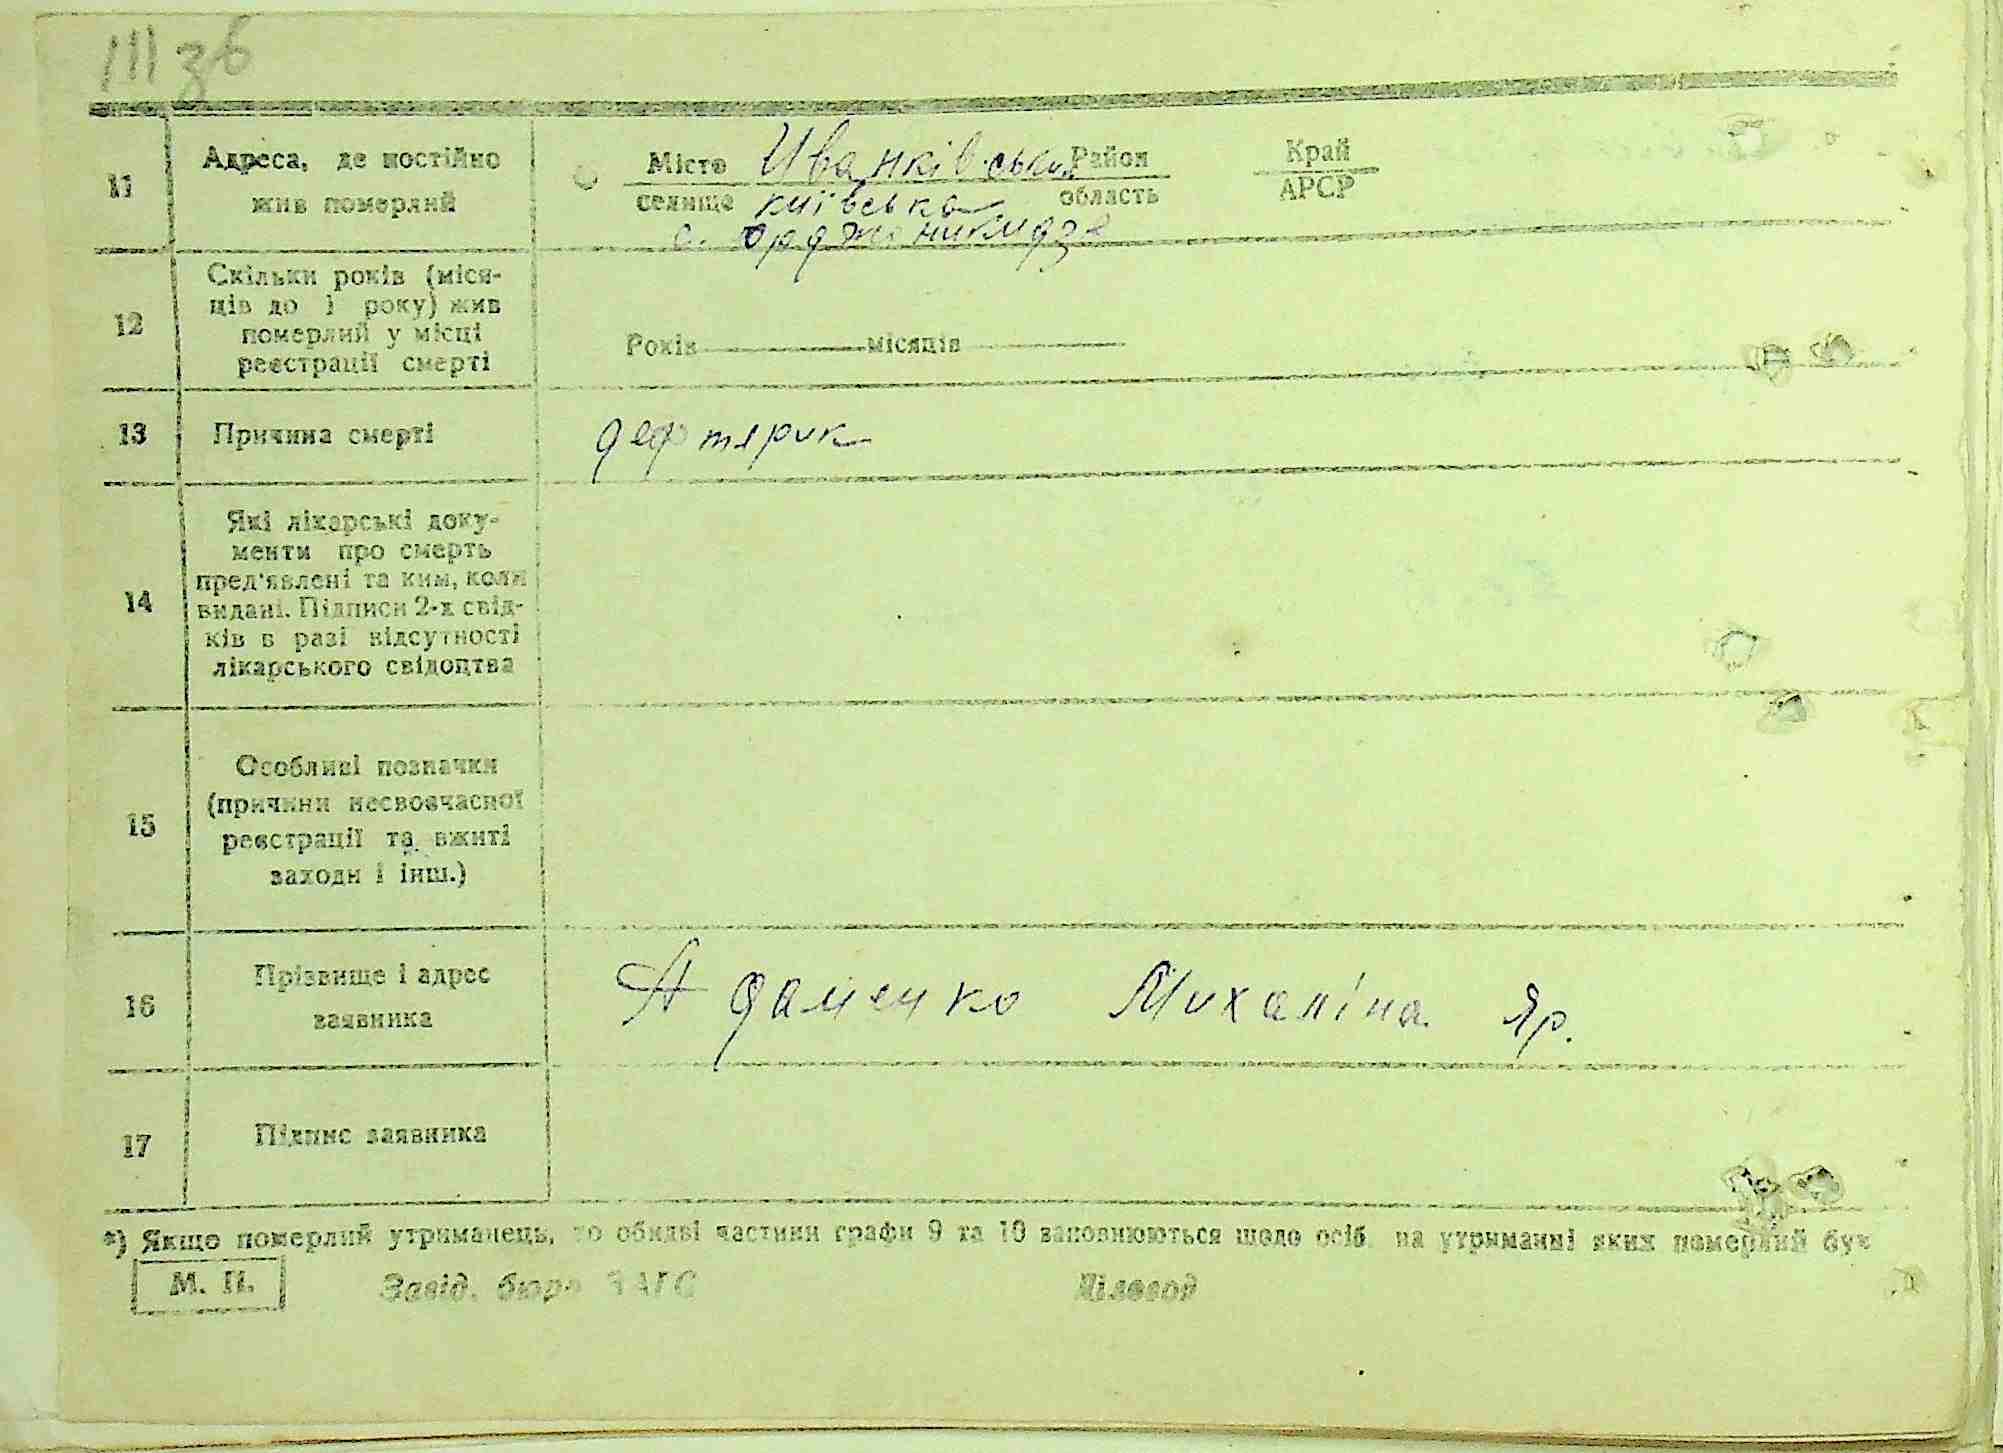 III зв
11 Адреса, де постійно жив померлий
Місто Иванківський Район Край
селище київська область АРСР
с. Орджоникидзе
12 Скільки років (міся-
ців до 1 року) жив
померлий у місці
реєстрації смерті
Років місяців
13 Причина смерті дефтярик
14 Які лікарські доку-
менти про смерть
пред'явлені та ким, коли
видані. Підписи 2-х свід-
ків в разі відсутності
лікарського свідоцтва
15 Особливі позначки
(причини несвоєчасної
реєстрації та вжиті
заходи і інш.)
16 Прізвище і адрес
заявника
Адаменко Михаліна Яр.
17 Підпис заявника
*) Якщо померлий утриманець, то обидві частини графи 9 та 10 заповнюються щодо осіб, на утриманні яких померлий був
М. П. Завід. бюро ЗАГС Діловод